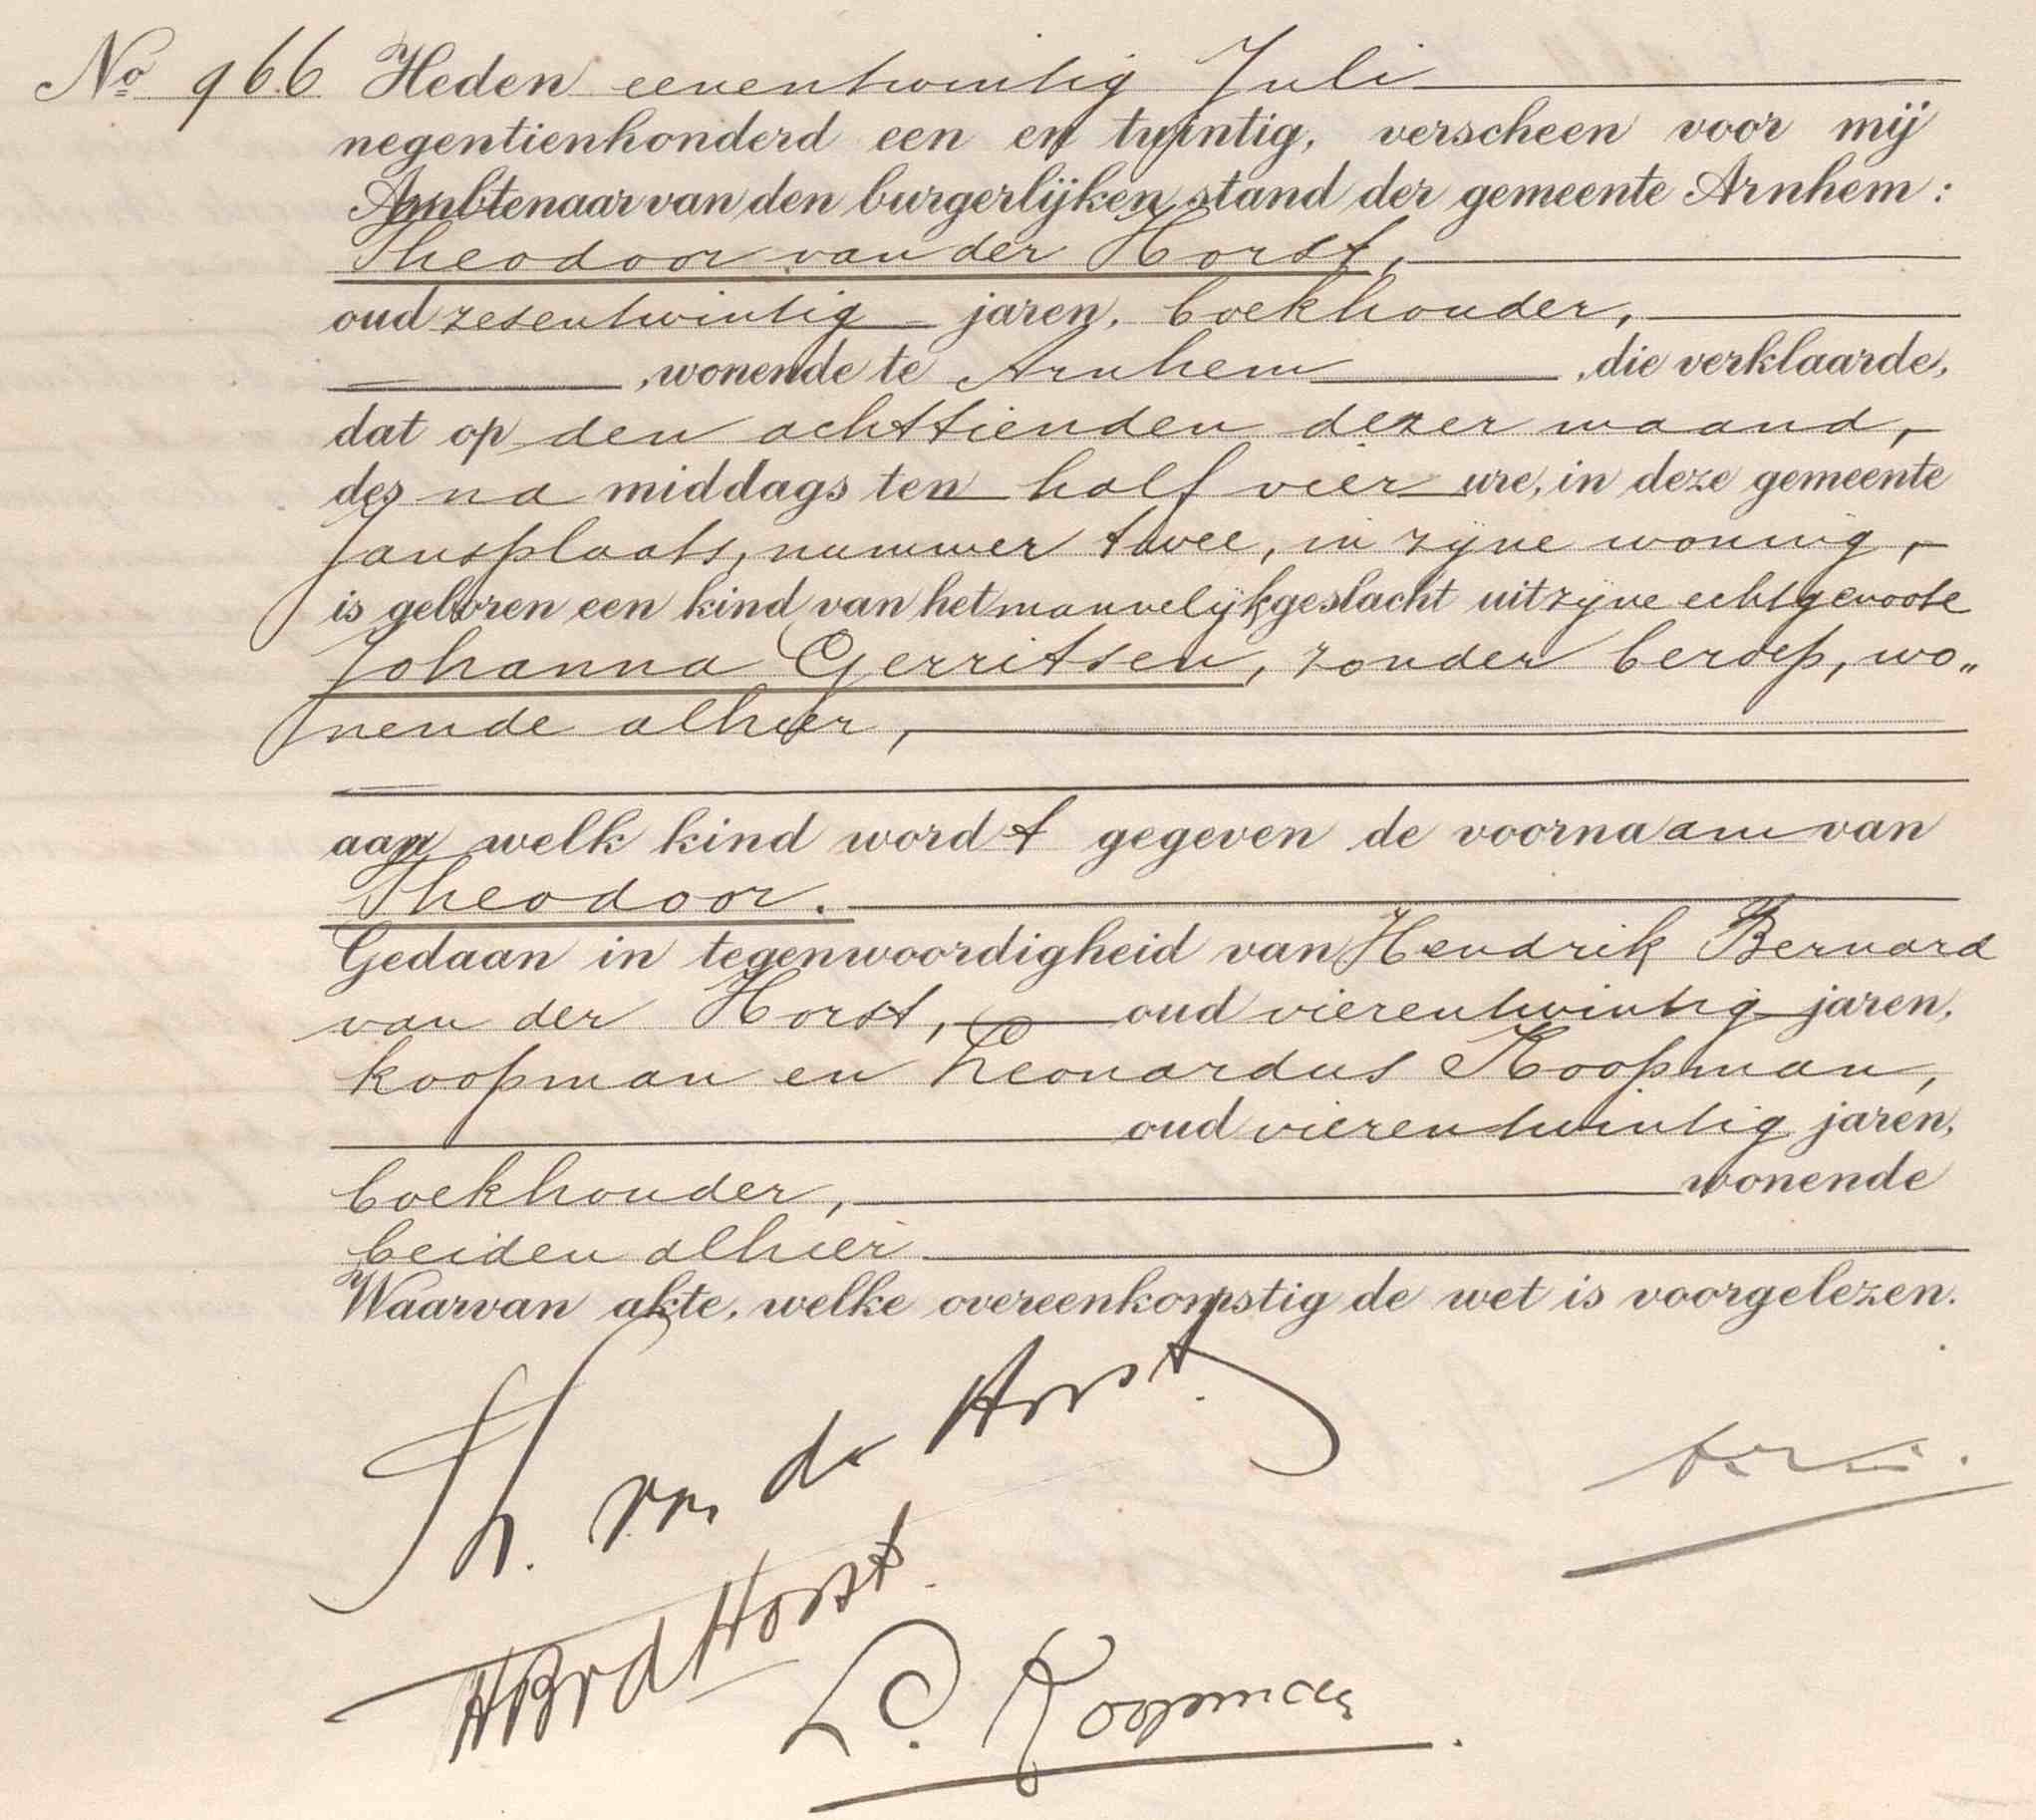 No 966 Heden eenentwintig Juli
negentienhonderd een en twintig, verscheen voor mij
Ambtenaar van den burgerlijken stand der gemeente Arnhem:
Theodoor van der Horst,
oud zesentwintig jaren, boekhouder,
, wonende te Arnhem, die verklaarde,
dat op den achttienden dezer maand,
des na middags ten half vier ure, in deze gemeente
Jansplaats, nummer twee, in zijne woning,
is geboren een kind van het mannelijk geslacht uit zijne echtgenoote
Johanna Gerritsen, zonder beroep, wo„
nende alhier,
aan welk kind wordt gegeven de voornaam van
Theodoor.
Gedaan in tegenwoordigheid van Hendrik Bernard
van der Horst, oud vierentwintig jaren,
koopman en Leonardus Koopman,
oud vierentwintig jaren,
boekhouder, wonende
beiden alhier
Waarvan akte, welke overeenkomstig de wet is voorgelezen.
Th. van der Horst.
HBvdHorst.
L. Koopman.